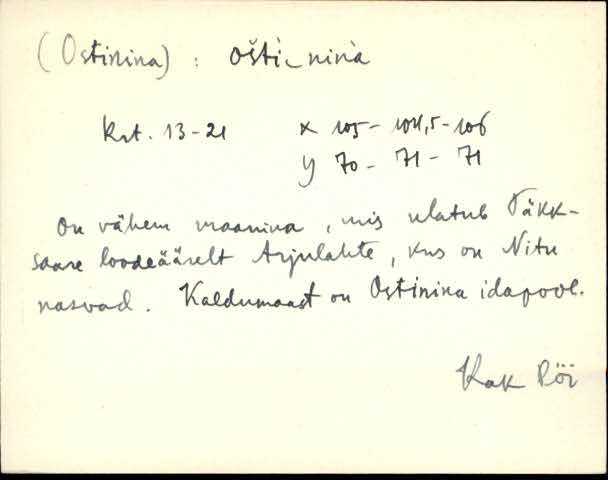 (Ostinina) : oštì nìnà
krt. 13-21 x 105 - 104,5 - 106
y 70 - 71 - 71
on vähem maanina, mis ulatub Täkk-
saare loodeäärelt Arjulahte, kus on Nitu
nasvad. Kaldumaast on Ostinina idapool.
Kak Pöi